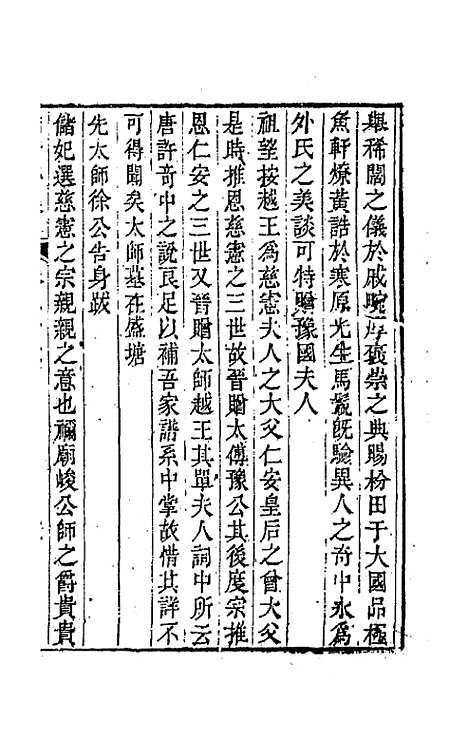 舉稀闊之儀於戚畹序褒崇之典賜枌田于大國品極
魚軒燎黃誥於寒原光生馬鬛旣驗異人之奇中永爲
外氏之美談可特贈豫國夫人
祖望按越王爲慈憲夫人之大父仁安皇后之曾大父
是時推恩慈憲之三世故晉贈太傅豫公其後度宗推
恩仁安之三世又晉贈太師越王其單夫人詞中所云
唐許奇中之說良足以補吾家譜系中掌故惜其詳不
可得聞矣太師墓在盛塘
先太師徐公告身跋
儲妃選慈憲之宗親親之意也禰廟峻公師之爵貴貴